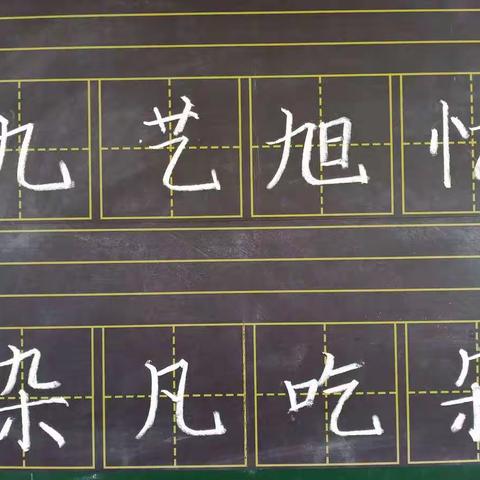 九艺旭忆
杂凡吃